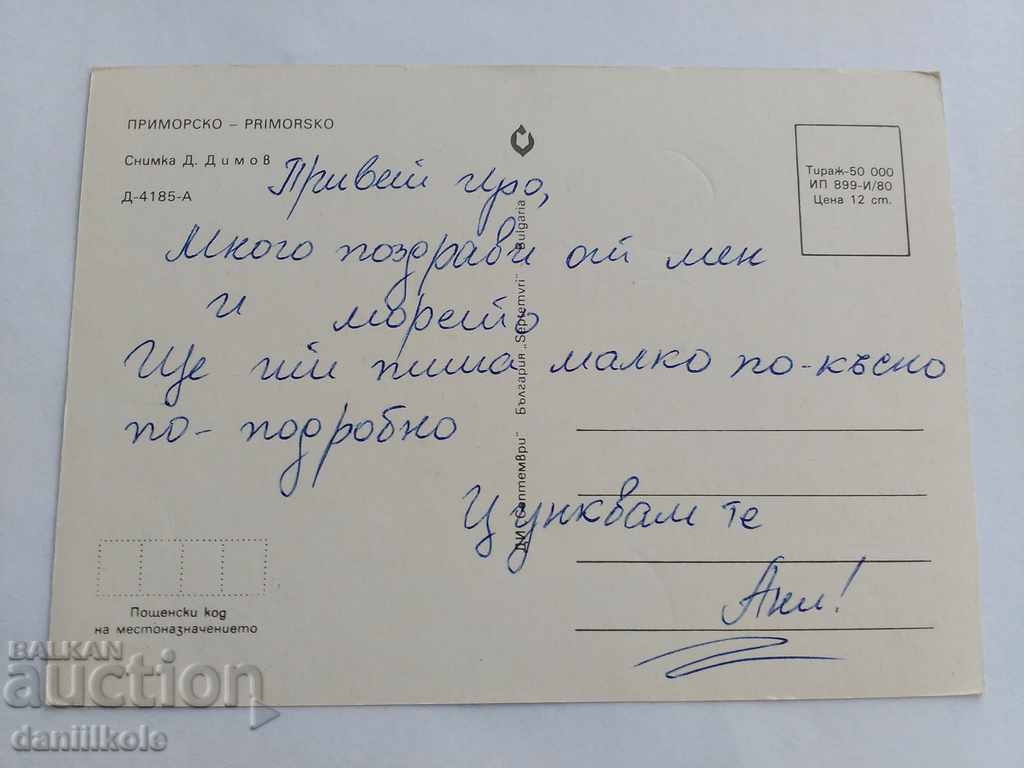 ПРИМОРСКО – PRIMORSKO
Снимка Д. Димов
Д-4185-А
Тираж-50 000
ИП 899-И/80
Цена 12 ст.
Привет
Много поздрави от мен
и морето
Ще ти пиша малко по-късно
по-подробно
Цунквам те
Ани!
ДИ „Септември" България „Septemvri" Bulgaria
Пощенски код
на местоназначението
BALKAN
auction
daniilkole